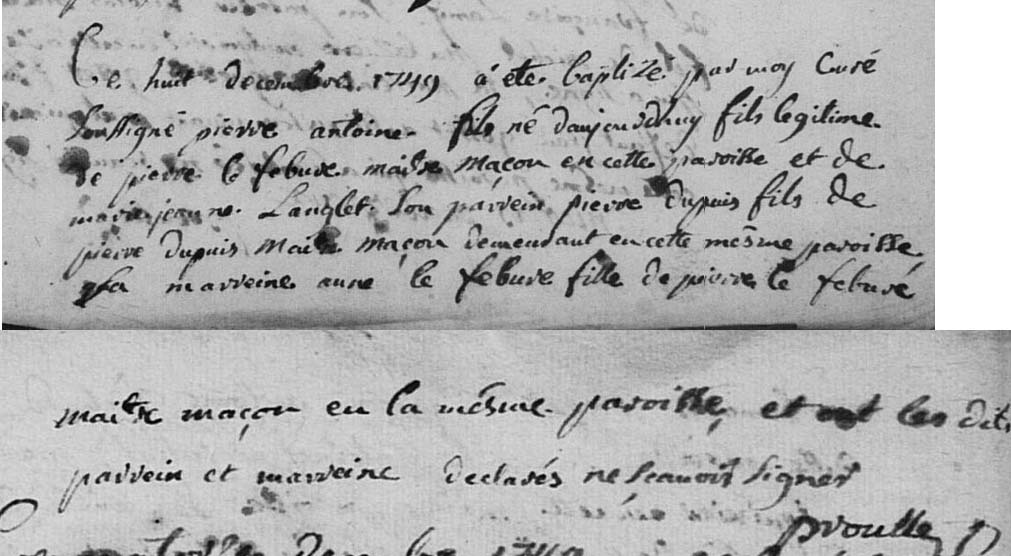 Ce huit decembre 1749 á ete baptizé par moy Curé
Soussigné pierre antoine fils né daujourdhuy fils legitime
de pierre le febure maitre maçon en cette paroisse et de
marie jeanne Langlet. Son parrein pierre dupuis fils de
pierre dupuis maitre maçon demeurant en cette mesme paroisse,
La marreine anne le febure fille de pierre le febure
maitre maçon en la mesme paroisse, et ont les dits
parrein et marreine declarés ne scauoir signer
proulle